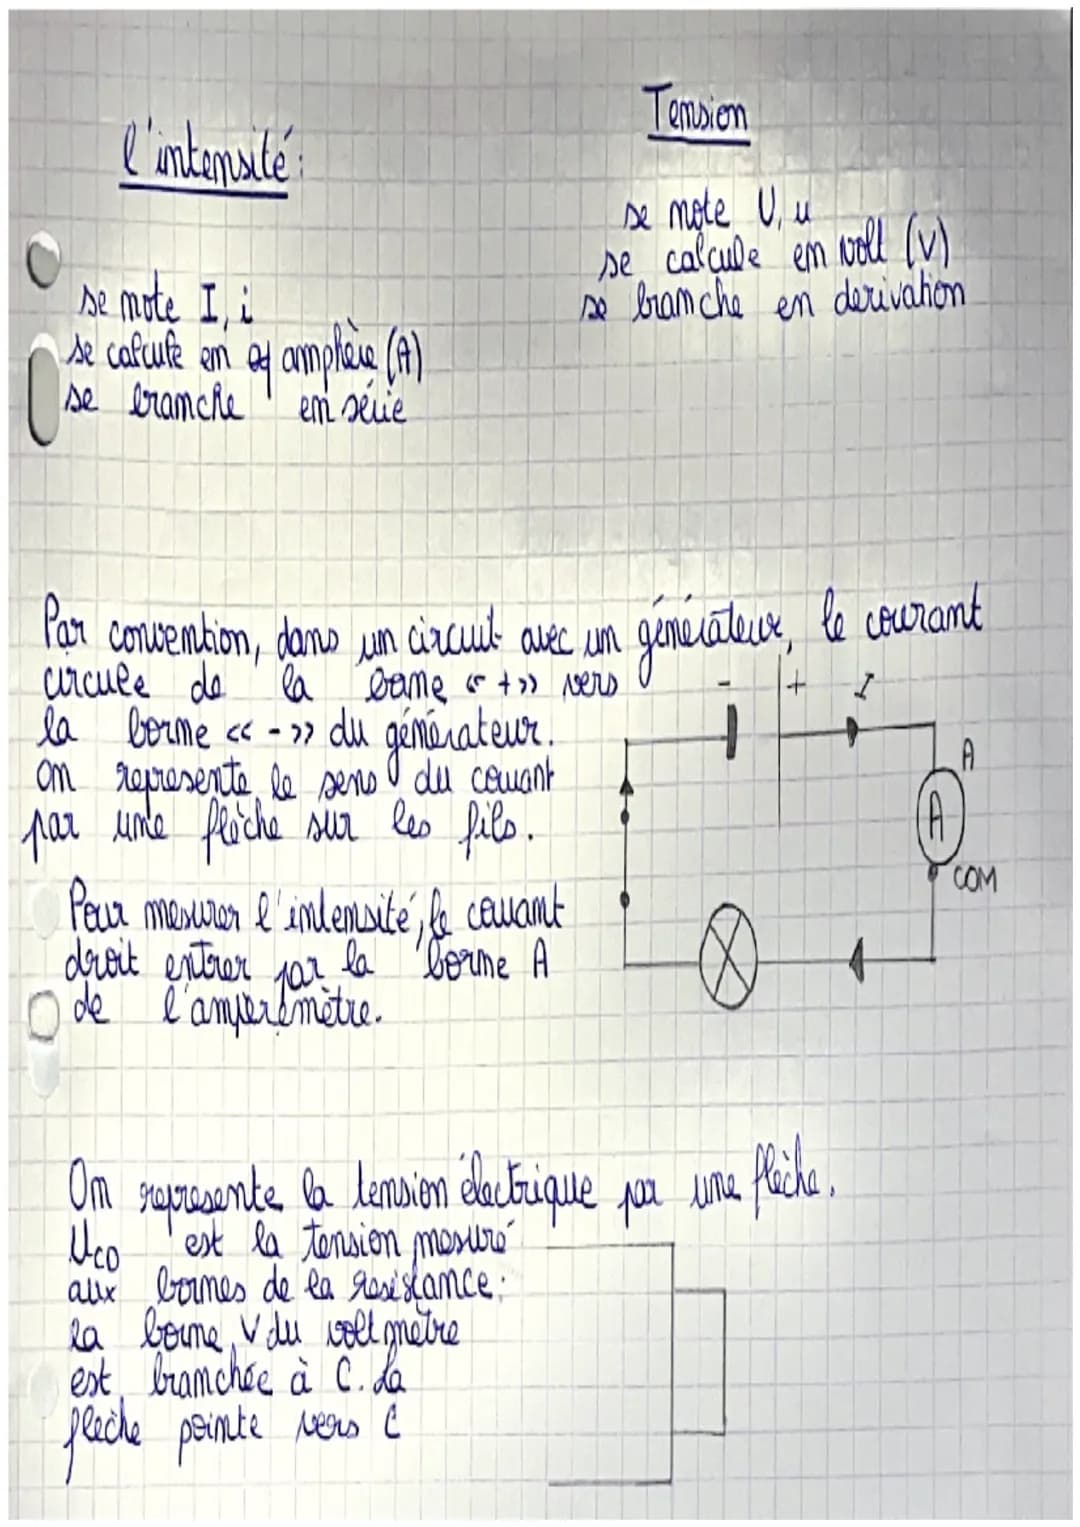 l'intensité:
se note I, i
se calcule en amphère (A)
se branche en série
Tension
se note U, u
se calcule en volt (V)
se branche en derivation
Par convention, dans un circuit avec un générateur, le courant
circule de la borne «+» vers
la borne «-» du générateur.
On represente le sens du courant
par une flèche sur les fils.
- + I
A
A
COM
Pour mesurer l'intensité, le courant
droit entrer par la borne A
de l'amperemètre.
On represente la tension électrique par une flèche.
UCD est la tension mesuré
aux bornes de la resistance:
la borne V du voltmètre
est branchée à C. La
flèche pointe vers C